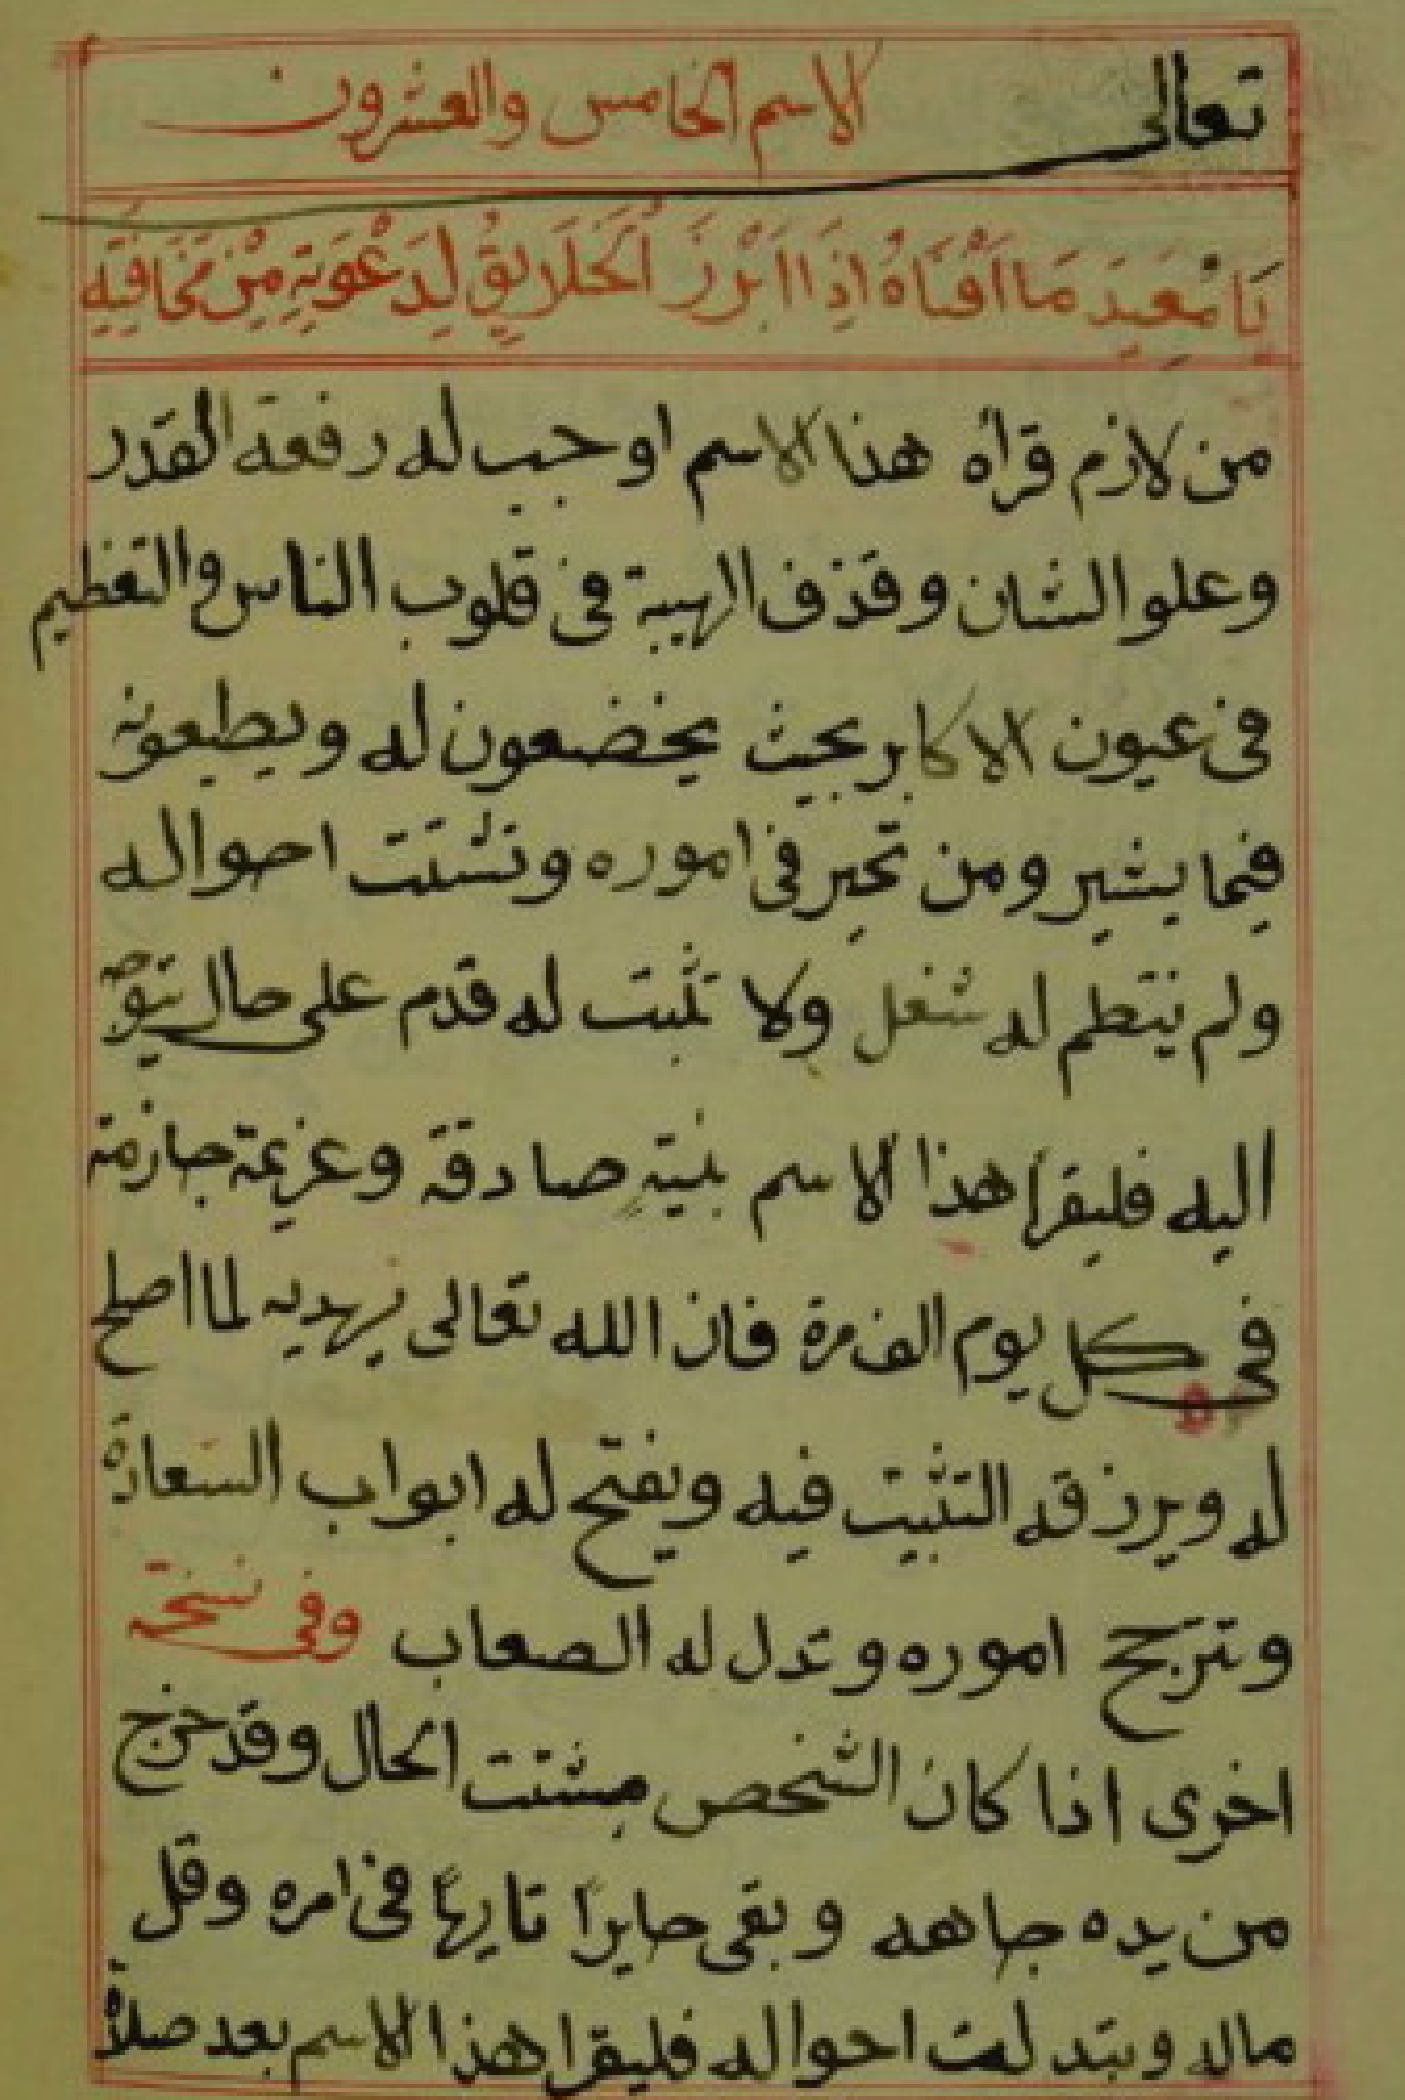 تعالى الاسم الخامس والعشرون
يَا مُعِيدَ مَا اَفْنَاهُ اِذَا اَبْرَزَ اُلْخَلَايِقُ لِدَعْوَتِهِ مِنْ مَخَافَتِهِ
من لازم قرأه هذا الاسم اوجب له رفعة القدر
وعلو الشان وقذف الهيبة فى قلوب الناس والتعظيم
فى عيون الاكابر بحيث يخضعون له ويطيعونه
فيما يشير ومن تحير فى اموره وتشتت احواله
ولم ينتظم له شغل ولا تثبت له قدم على حال يتوجه
اليه فليقرا هذا الاسم بنيةٍ صادقة وعزيمة جازمة
فى كل يوم الف مرة فان الله تعالى يهديه لما اصلح
له ويرزقه التثبيت فيه ويفتح له ابواب السَعادة
وتترجح اموره وتدل له الصعاب وفى نسخة
اخرى اذا كان الشخص مشتت الحال وقد خرج
من يده جاهه وبقى حايرًا تايهًا فى امره وقل
ماله وتبدلت احواله فليقرا هذا الاسم بعد صلاة